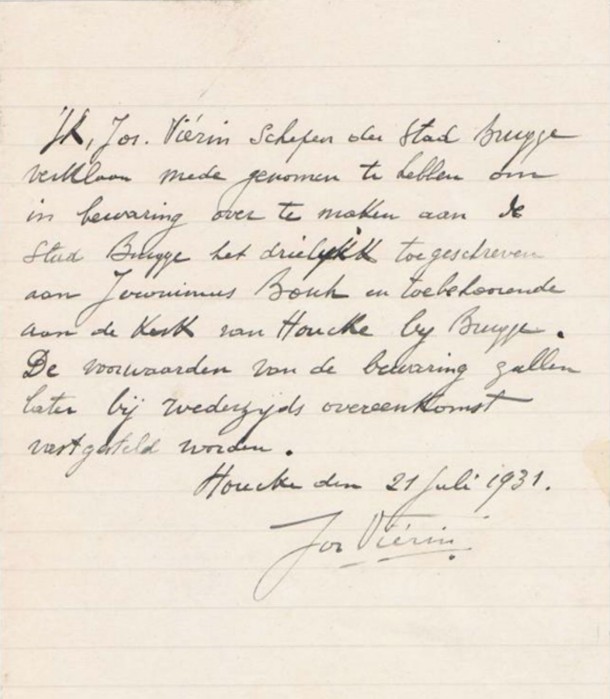 Ik, Jos. Viérin Schepen der Stad Brugge
verklaar mede genomen te hebben om
in bewaring over te maken aan de
Stad Brugge het drieluik toegeschreven
aan Jeronimus Bosch en toebehoorende
aan de Kerk van Houcke by Brugge.
De voorwaarden van de bewaring zullen
later bij wederzijds overeenkomst
vastgesteld worden.
Houcke den 21 Juli 1931.
Jos Viérin